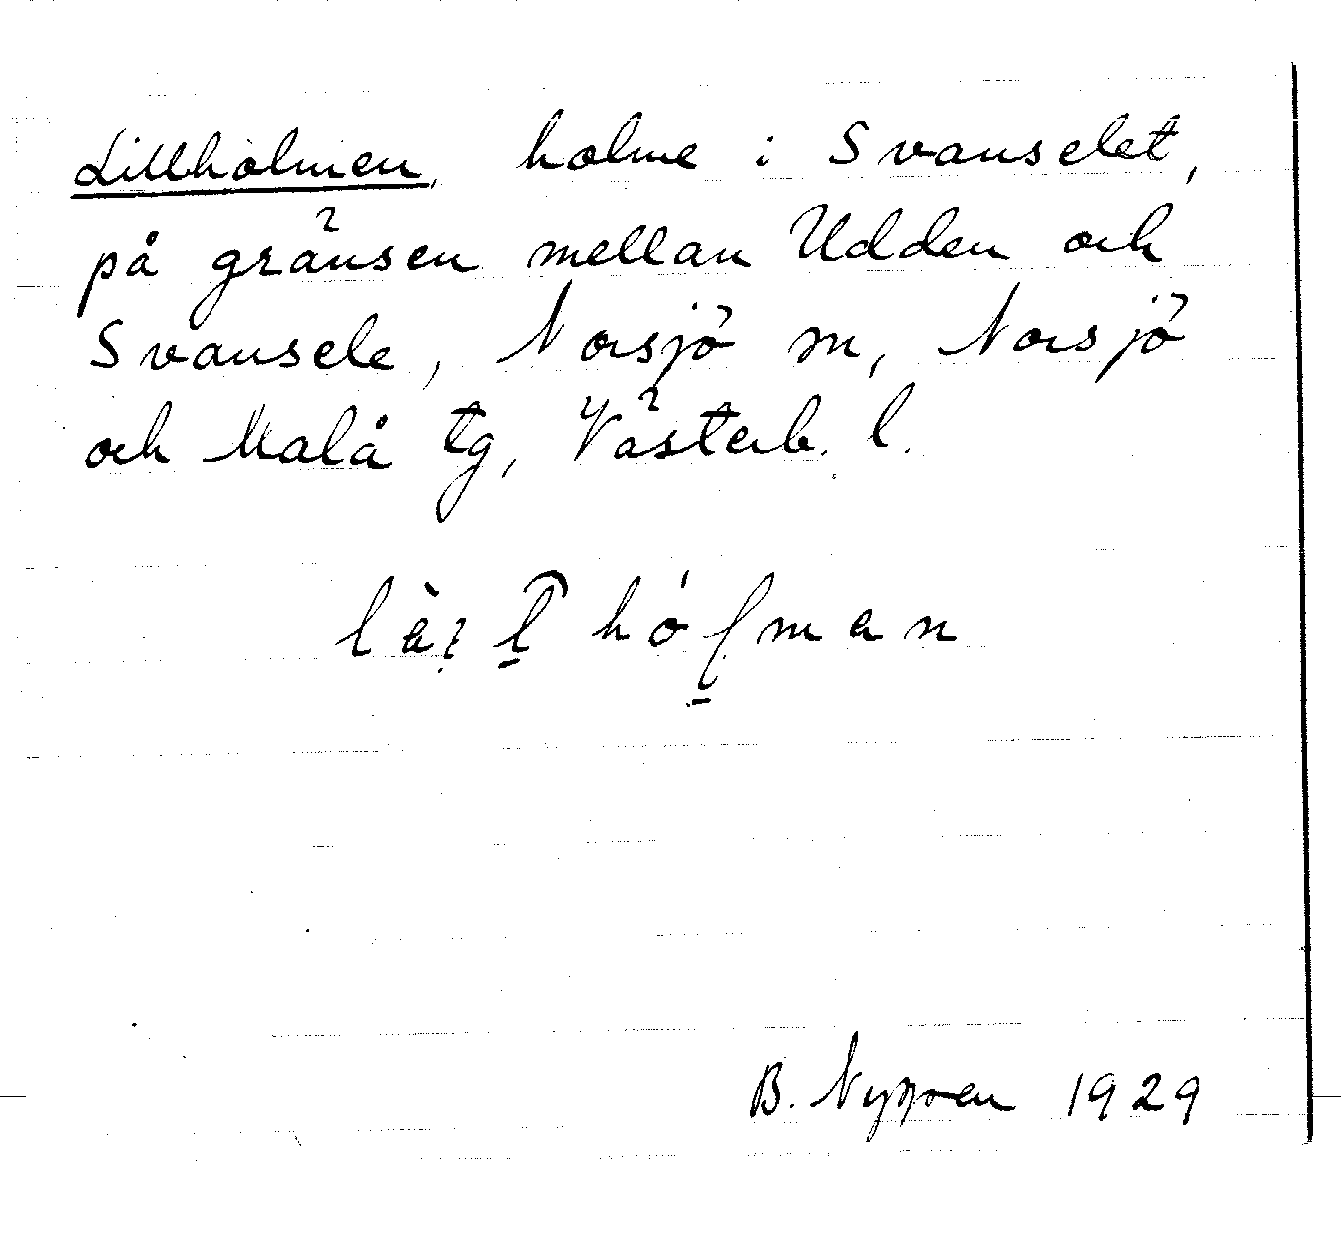 Lillholmen, holme i Svanselet,
på gränsen mellan Udden och
Svansele, Norsjö sn, Norsjö
och Malå tg, Västerb. l.
B. Nygren 1929